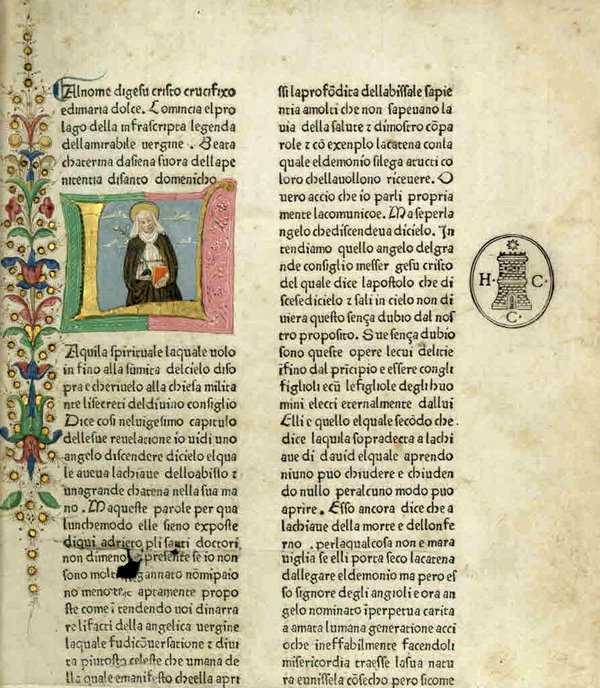 Alnome digesu cristo crucifixo
edimaria dolce. Comincia elpro
lago della infrascripta legenda
dellamirabile vergine . Beata
chaterina dasiena suora dellape
nitentia disanto domenicho
L
Aquila spirituale laquale uolo
in fino alla sũmita delcielo diso
pra e cheriuelo alla chiesa milita
nte lisecreti deldiuino consiglio
Dice cosi neluigesimo capitulo
dellesue reuelatione io uidi uno
angelo discendere dicielo elqua
le aueua lachiaue delloabisso ⁊
unagrande chatena nella sua ma
no . Maqueste parole per qua
lunchemodo elle sieno exposte
diqui adrieto pli santi doctori
non dimeno presente se io non
sono molto gannato nomipaio
no meno aptamente propo
ste come i tendendo uoi dinarra
re lifacti della angelica uergine
laquale fudicõuersatione ⁊ diui
ta piutosto celeste che umana de
lla quale emanifesto cheella apri
ssi laprofõdita dellabissale sapie
ntia amolti che non sapeuano la
uia della salute ⁊ dimostro cõpa
role ⁊ cõ exenplo lacatena conla
quale eldemonio silega atucti co
loro chellauollono riceuere. O
uero accio che io parli propria
mente lacomunicoe. Ma seperla
ngelo chediscendeua dicielo. In
tendiamo quello angelo delgra
nde consiglio messer gesu cristo
del quale dice lapostolo che di
scese dicielo ⁊ sali in cielo non di
uiera questo sença dubio dal nos
tro proposito. Sue sença dubio
sono queste opere lecui delitie
ifino dal pricipio e essere congli
figlioli ecũ lefigliole degli huo
mini electi eternalmente dallui
Elli e quello elquale secõdo che.
dice laquila sopradecta a lachi
aue di dauid elquale aprendo
niuno puo chiudere e chiuden
do nullo peralcuno modo puo
aprire. Esso ancora dice che a
lachiaue della morte e dellonfe
rno . perlaqualcosa non e mara
uiglia se elli porta seco lacatena
dallegare eldemonio ma pero es
so signore degli angioli e ora an
gelo nominato iperpetua carita
a amata lumana generatione acci
oche ineffabilmente facendoli
misericordia traesse lasua natu
ra eunissela cõsecho pero sicome
H · C ·
C ·